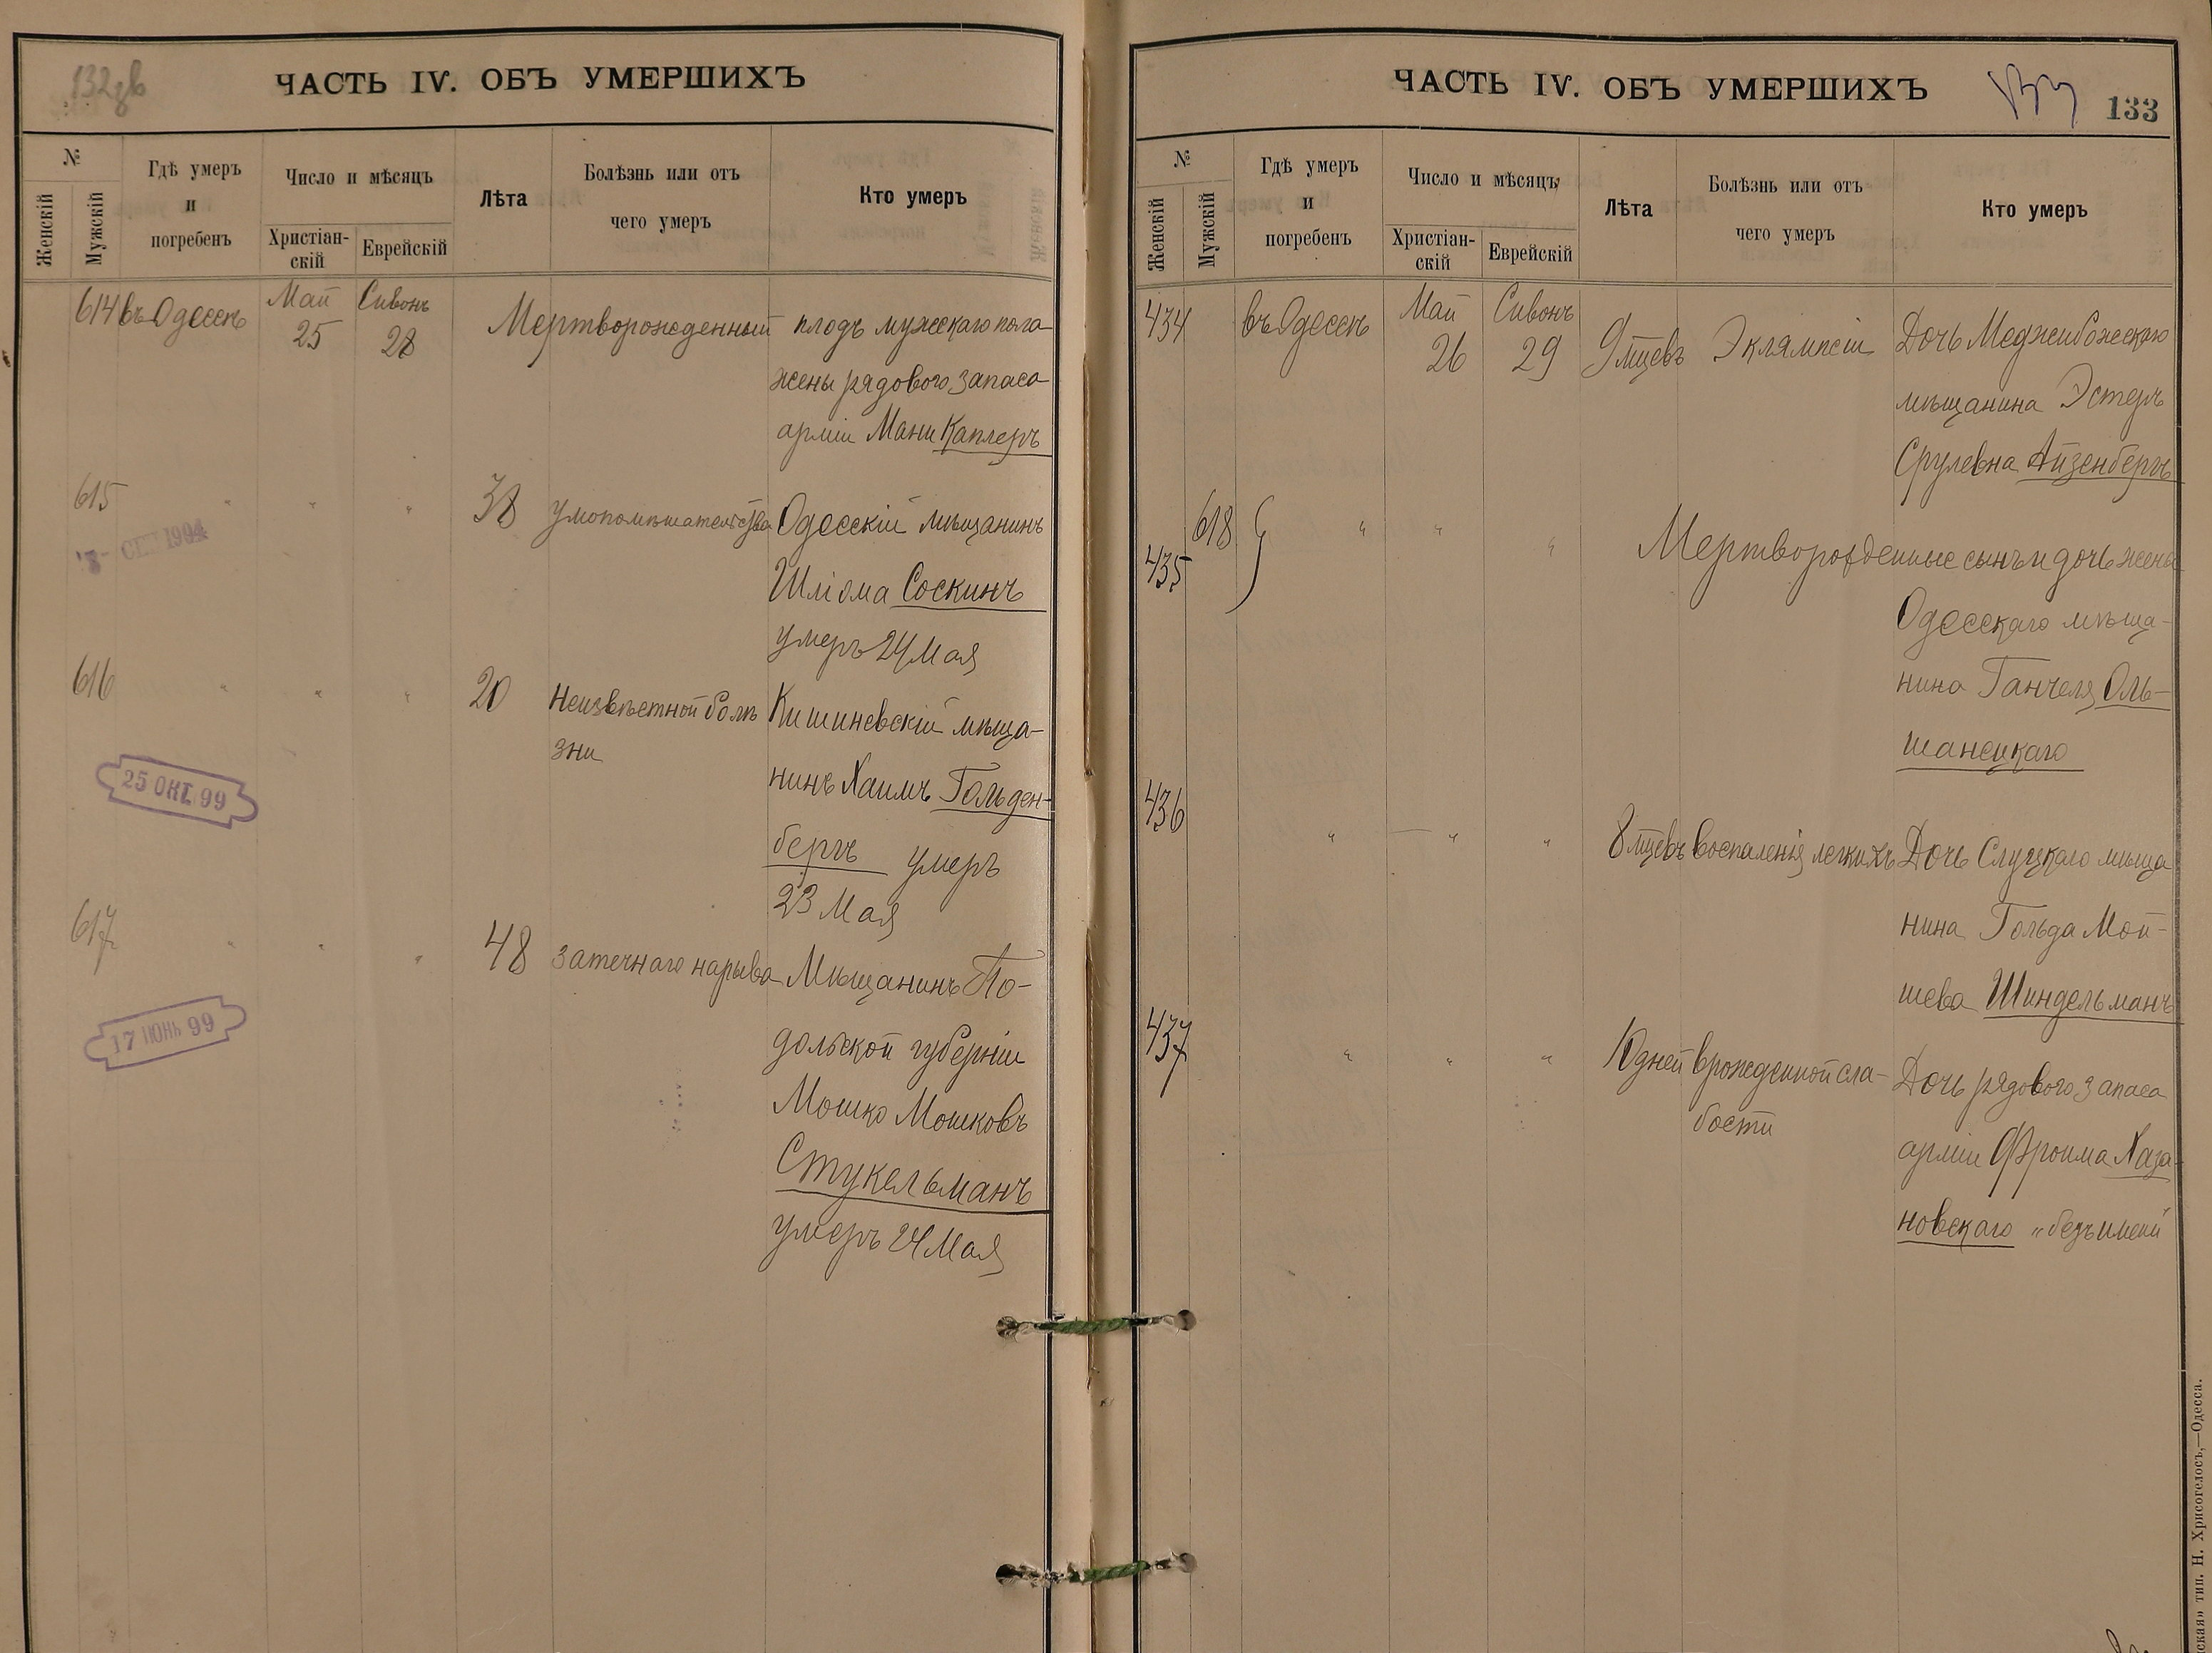 132 зв
ЧАСТЬ IV. ОБЪ УМЕРШИХЪ
№
Женскій
Мужскій
Гдѣ умеръ
и
погребенъ
Число и мѣсяцъ
Христіан-
скій
Еврейскій
Лѣта
Болѣзнь или отъ
чего умеръ
Кто умеръ
614 въ Одессѣ Май 25 Сивонъ 28 Мертворожденный плодъ мужскаго пола
жены рядового запаса
арміи Мани Каплеръ
615 " " " 38 умопомѣшательства Одесскій мѣщанинъ
Шліома Соскинъ
умеръ 24 Мая
616 " " " 20 Неизвѣстной болѣ Кишиневскій мѣща-
зни
нинъ Хаимъ Гольден-
25 ОКТ. 99
бергъ умеръ
23 Мая
617 " " " 48 затечнаго нарыва Мѣщанинъ По-
17 ІЮНЬ 99
дольской губерніи
Мошко Мошковъ
Стукельманъ
умеръ 24 Мая
ЧАСТЬ IV. ОБЪ УМЕРШИХЪ
133
№
Женскій
Мужскій
Гдѣ умеръ
и
погребенъ
Число и мѣсяцъ
Христіан-
скій
Еврейскій
Лѣта
Болѣзнь или отъ
чего умеръ
Кто умеръ
434 въ Одессѣ Май 26 Сивонъ 29 9 мцевъ Эклямпсіи Дочь Меджибожскаго
мѣщанина Эстеръ
Срулевна Айзенбергъ
618 " " "
435 Мертворожденные сынъ и дочь жены
Одесскаго мѣща-
нина Ганчеля Оль-
шанецкаго
436 " " " 8 мцевъ воспаленія легкихъ Дочь Слуцкаго мѣща
нина Гольда Мой-
шева Шиндельманъ
437 " " " 10 дней врожденной сла- Дочь рядового запаса
бости
арміи Фроима Хаза-
новскаго "безъ имени"
тип. Н. Хрисогелосъ,—Одесса.